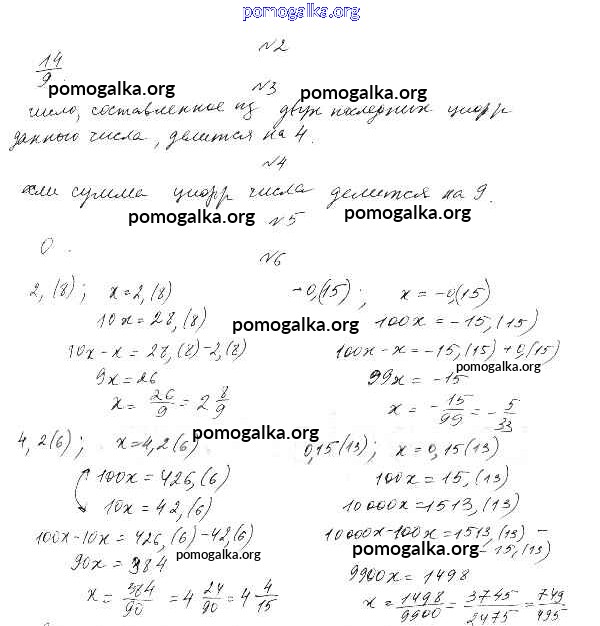 pomogalka.org
№2
14/9
pomogalka.org
№3
pomogalka.org
число, составленное из двух последних цифр
данного числа, делится на 4.
№4
если сумма цифр числа делится на 9.
pomogalka.org
№5
pomogalka.org
0.
№6
2,(8); x=2,(8)
10x=28,(8)
10x-x=28,(8)-2,(8)
9x=26
x=26/9=2 8/9
-0,(15); x=-0,(15)
pomogalka.org
100x=-15,(15)
100x-x=-15,(15)+0,(15)
pomogalka.org
99x=-15
x=-15/99=-5/33
4,2(6); x=4,2(6)
pomogalka.org
100x=426,(6)
10x=42,(6)
100x-10x=426,(6)-42,(6)
pomogalka.org
90x=384
x=384/90=4 24/90=4 4/15
0,15(13); x=0,15(13)
100x=15,(13)
10000x=1513,(13)
10000x-100x=1513,(13)-
pomogalka.org
-15,(13)
9900x=1498
x=1498/9900=3745/2475=749/495